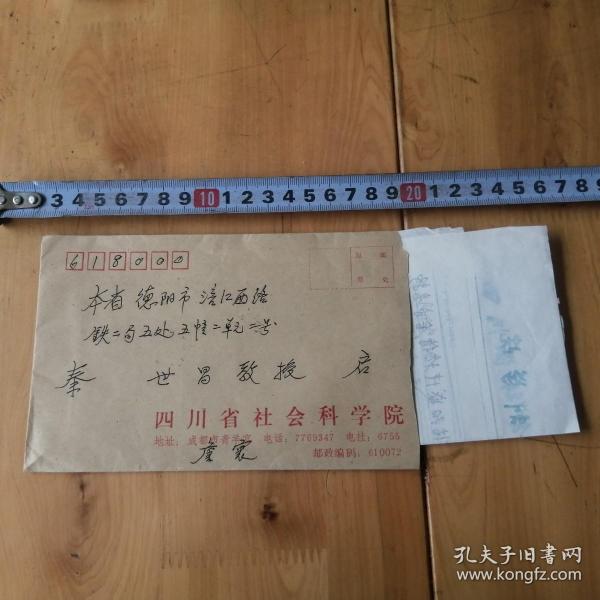 3 4 5 6 7 8 9 10 1 2 3 4 5 6 7 8 9 20 1 2 3 4 5 6 7 8 9
618000
贴 邮
票 处
本省 德阳市 涪江西路
铁二局五处五幢二单元二号
秦 世昌教授 启
四川省社会科学院
地址：成都市青羊宫 电话：7769347 电挂：6755
邮政编码：610072
孔夫子旧书网
www.kongfz.com